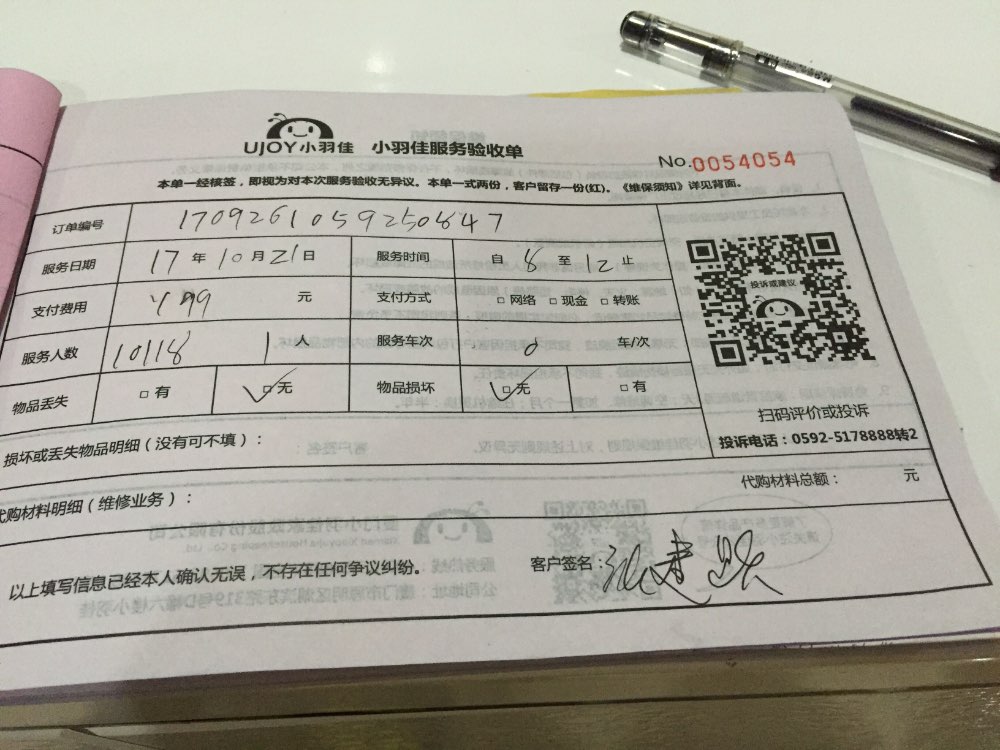 UJOY小羽佳 小羽佳服务验收单
No.0054054
本单一经核签，即视为对本次服务验收无异议。本单一式两份，客户留存一份(红)。《维保须知》详见背面。
订单编号 1709261059250847
服务日期 17年10月21日 服务时间 自8至12止
支付费用 元 支付方式 □网络 □现金 □转账
服务人数 10118 1人 服务车次 0 车/次
物品丢失 □有 □无 物品损坏 □无 □有
投诉或建议
扫码评价或投诉
投诉电话：0592-5178888转2
损坏或丢失物品明细（没有可不填）：
代购材料明细（维修业务）： 代购材料总额： 元
以上填写信息已经本人确认无误，不存在任何争议纠纷。 客户签名：